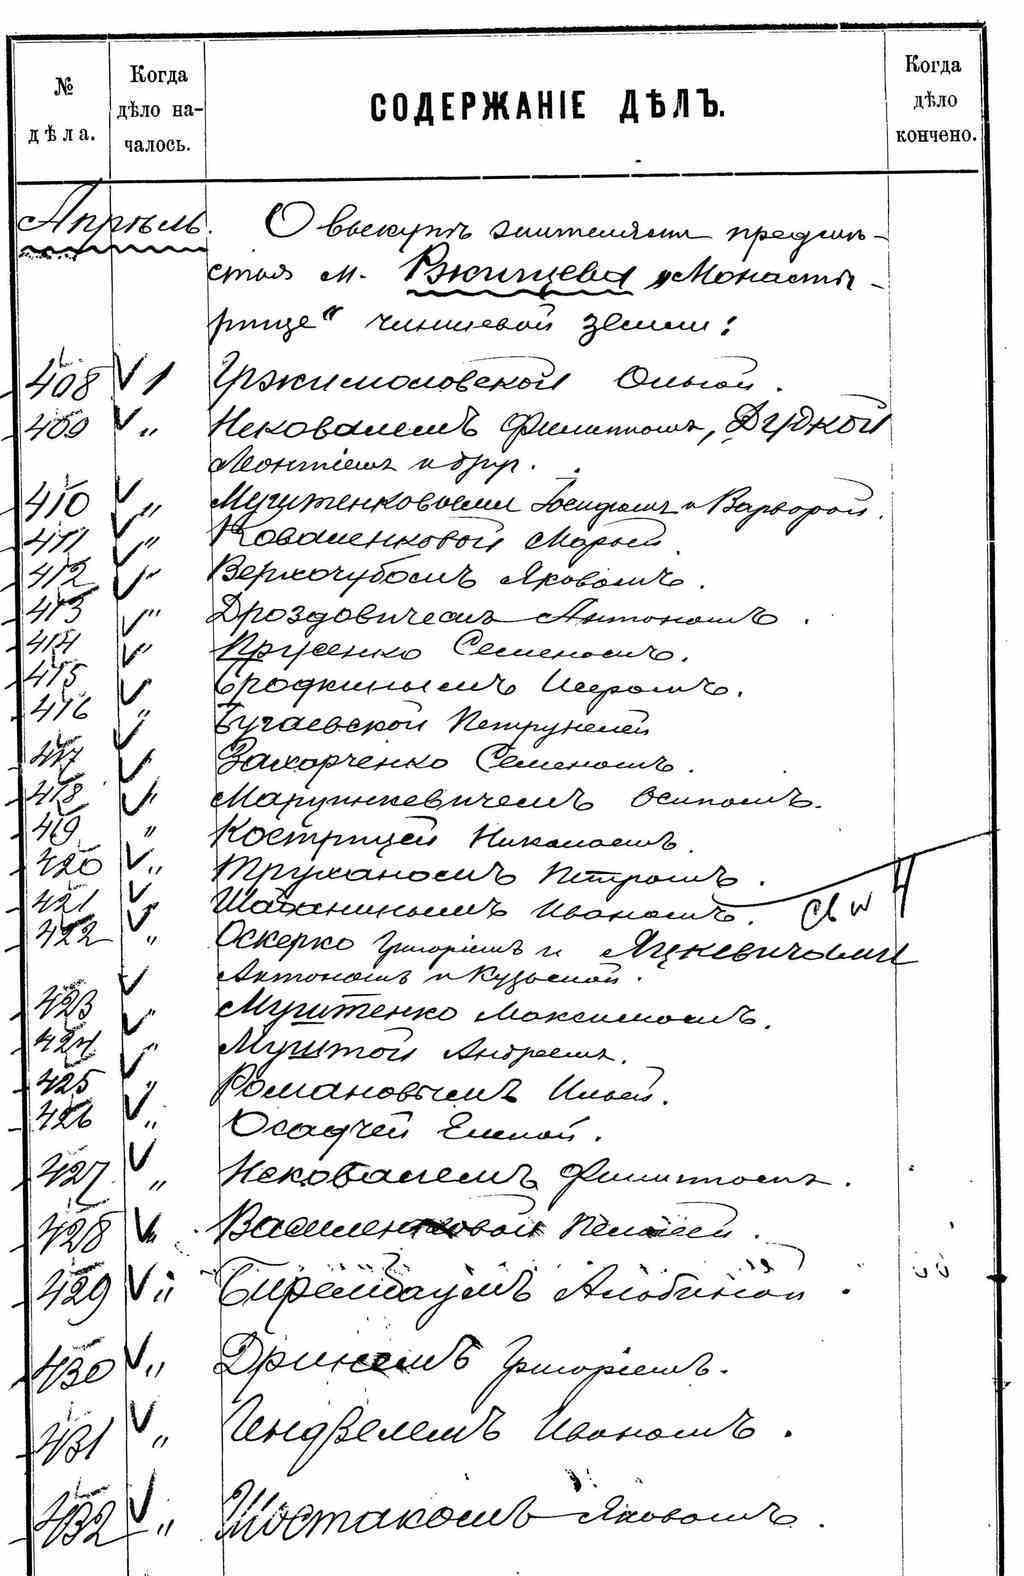 № дѣла.
Когда дѣло на-
чалось.
СОДЕРЖАНІЕ ДѢЛЪ.
Когда дѣло кончено.
Апрѣль. О выкупѣ жителями предмѣ-
стья м. Ржищева „Монасты-
рище“ чиншевой земли:
408 V 1 Гржимоловской Ольгой.
409 V " Нековалемъ Филиппомъ, Дудкой
Леонтіемъ и др.
410 V " Мушtенковыми Іосифомъ и Варварой.
411 V " Коваленковой Марьей.
412 V " Верхочубомъ Яковомъ.
413 V " Дроздовичемъ Антономъ.
414 V " Прусенко Семеномъ.
415 V " Бродкинымъ Исромъ.
416 V " Бугаевской Петрунелей
417 V " Захарченко Семеномъ.
418 V " Марцинкевичемъ Осипомъ.
419 " Кострицей Николаемъ.
420 V " Труханомъ Петромъ.
421 V " Шаханинымъ Иваномъ.
422 V " Оскерко Григоріемъ и Яцкевичами
Антономъ и Кузьмой.
423 V " Муштенко Максимомъ.
424 V " Муштой Андреемъ.
425 V " Романовымъ Ильей.
426 V " Осадчей Еленой.
427 V " Нековалемъ Филиппомъ.
428 V " Василенковой Пелагеей.
429 V " Биренбаумъ Альбиной.
430 V " Дринемъ Григоріемъ.
431 V " Гендзелемъ Иваномъ.
432 V " Шостакомъ Яковомъ.